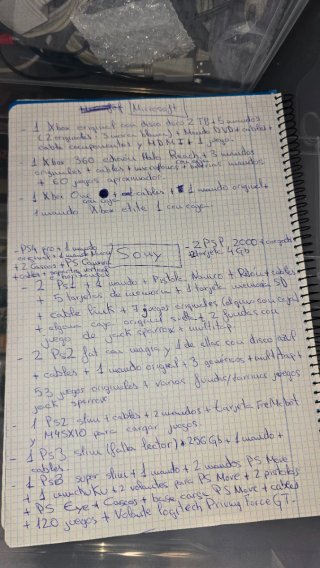 Microsoft
- 1 Xbox original con disco duro 2TB + 5 mandos
(2 originales, 3 sin blancos) + Mando DVD + cables +
cable componentes y HDMI + 1 juego.
- 1 Xbox 360 edición Halo Reach + 3 mandos
originales + cables + micrófonos + baterías mandos
+ 60 juegos aproximados
- 1 Xbox One con caja + cables + 1 mando original +
1 mando Xbox elite 1 con caja.
- PS4 pro + 1 mando
original + 1 mando
+ 2 + PS Camera
+ cables +
Sony
- 2 PSP, 2000 + cargador
tarjeta 4Gb
- 2 Ps1 + 1 mando + Pistola Namco + Ratón + cables
+ 5 tarjetas de memoria + 1 tarjeta memoria SD
+ cable Link + 7 juegos originales (alguno con caja)
+ alguna caja original suelta + 2 fundas con
juego de jack sparrow + multitap.
- 2 Ps2 fat con magia y 1 de ellas con disco azul
+ cables + 1 mando original + 3 genéricos + multitap +
53 juegos originales + varias fundas/tarrinas juegos
jack sparrow
- 1 Ps2 slim + cables + 2 mandos + tarjeta FreMcbot
y M4SX10 para cargar juegos.
- 1 Ps3 slim (falla lector) + 256Gb + 1 mando +
cables.
- 1 Ps3 super slim + 1 mando + 2 mandos PS Move
+ 1 + 2 volantes para PS Move + 2 pistolas
+ PS Eye + Cascos + base carga PS Move + cables
+ 120 juegos + Volante Logitech Driving Force GT.